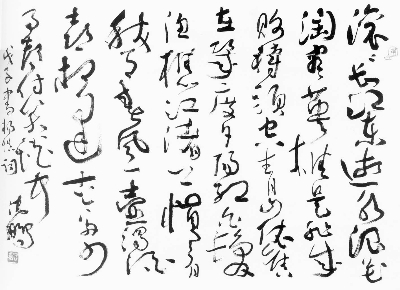 滚滚长江东逝水浪花
淘尽英雄是非成
败转头空青山依旧
在几度夕阳红白发
渔樵江渚上惯看
秋月春风一壶浊酒
喜相逢古今多少
事都付笑谈中
戊子书杨慎词 沈鹏